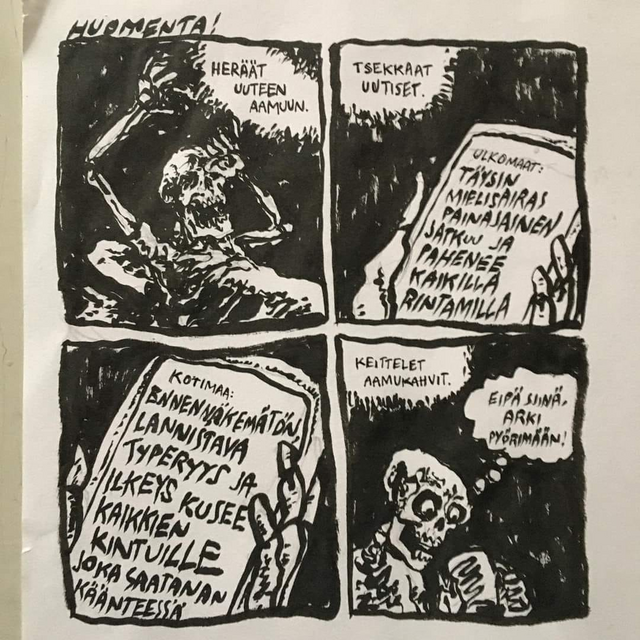 HUOMENTA!
HERÄÄT
UUTEEN
AAMUUN.
TSEKKAAT
UUTISET.
ULKOMAAT:
TÄYSIN
MIELISAIRAS
PAINAJAINEN
JATKUU JA
PAHENEE
KAIKILLA
RINTAMILLA
KOTIMAA:
ENNENNÄKEMÄTÖN
LANNISTAVA
TYPERYYS JA
ILKEYS KUSEE
KAIKKIEN
KINTUILLE
JOKA SAATANAN
KÄÄNTEESSÄ
KEITTELET
AAMUKAHVIT.
EIPÄ SIINÄ,
ARKI
PYÖRIMÄÄN!